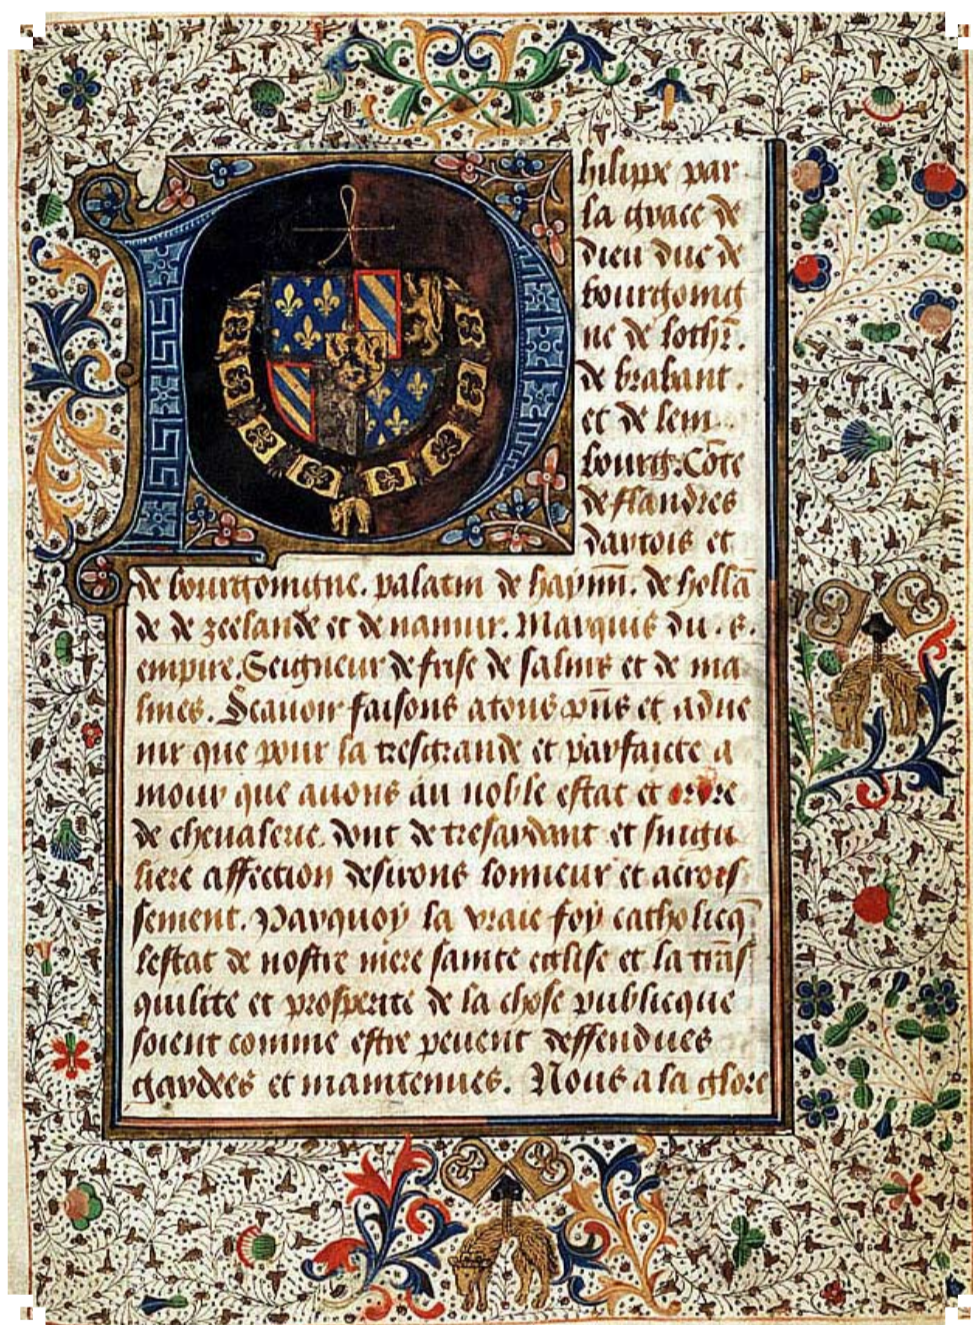 Philippe par
la grace de
dieu duc de
bourgoing
ne de lothr̄.
de brabant.
et de lem
bourg. Cōte
de flandres
dartois et
de bourgoingne. palatin de haynn̄. de hollā
de de zeelande et de namur. Marquis du .s.
empire. Seigneur de frise de salins et de ma
lines. Scauoir faisons a tous pn̄s et adue
nir que pour la tresgrande et parfaicte a
mour que auons au noble estat et ordre
de cheualerie. dont de tresardant et singu
liere affection desirons lonneur et acrois
sement. Parquoy la vraie foy catholicq̄
lestat de nostre mere sainte eglise et la trās
quilite et prosperite de la chose publicque
soient comme estre peuent deffendues
gardees et maintenues. Nous a la glore